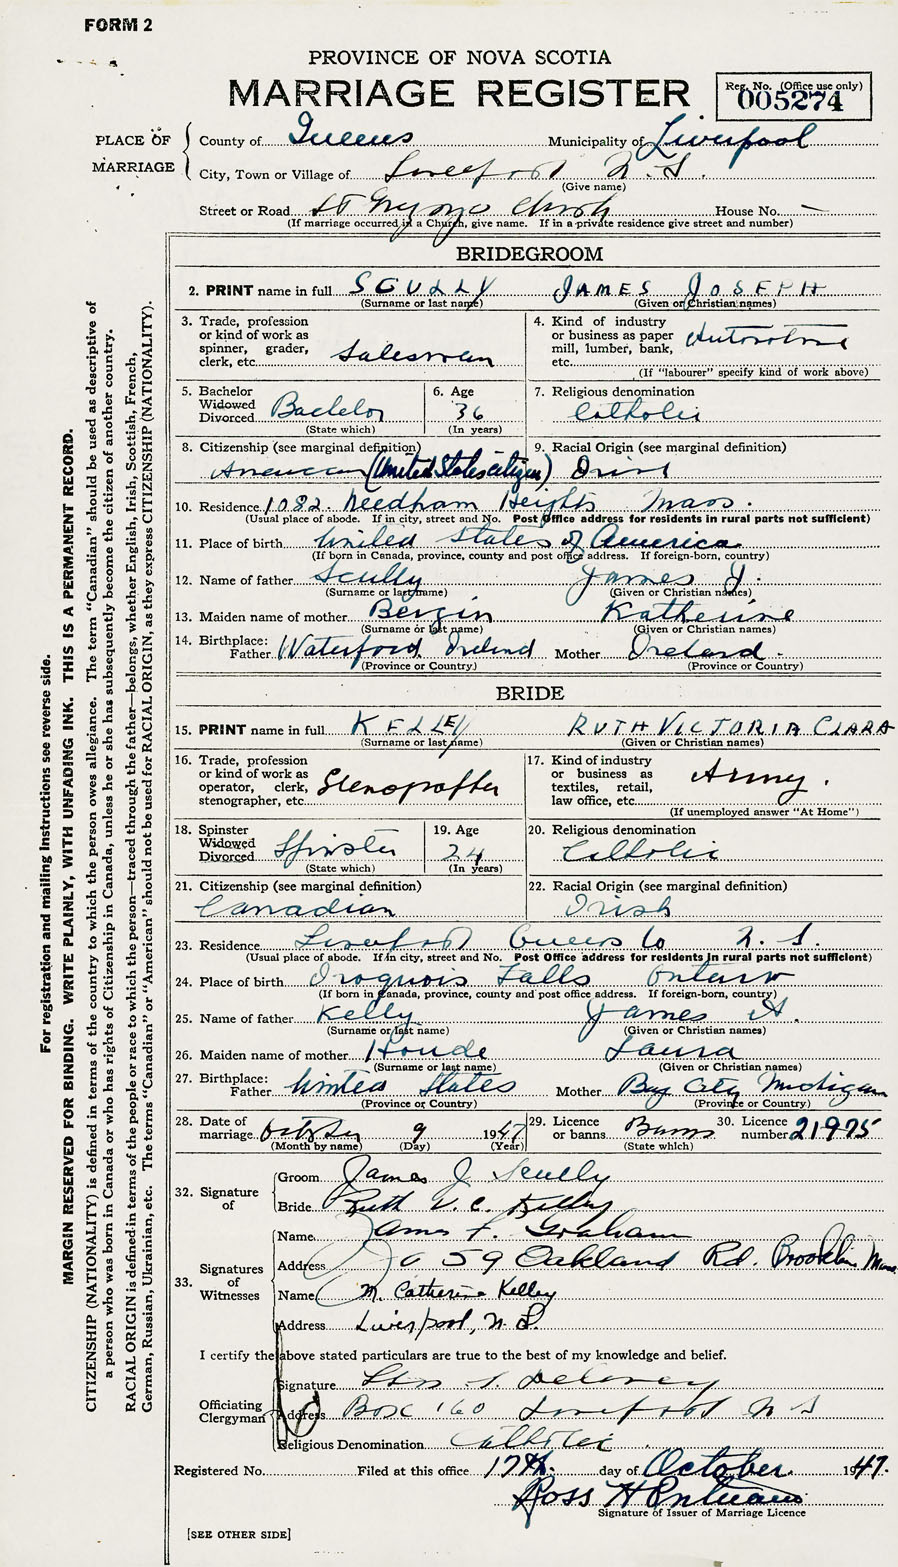 FORM 2
PROVINCE OF NOVA SCOTIA
MARRIAGE REGISTER
Reg. No. (Office use only)
005274
PLACE OF MARRIAGE
County of Queens Municipality of Liverpool
City, Town or Village of Liverpool N.S.
(Give name)
Street or Road St Church House No. —
(If marriage occurred in a Church, give name. If in a private residence give street and number)
BRIDEGROOM
2. PRINT name in full SCULLY JAMES JOSEPH
(Surname or last name) (Given or Christian names)
3. Trade, profession or kind of work as spinner, grader, clerk, etc. Salesman
4. Kind of industry or business as paper mill, lumber, bank, etc.
(If "labourer" specify kind of work above)
5. Bachelor Widowed Divorced Bachelor
(State which)
6. Age 36
(In years)
7. Religious denomination Catholic
8. Citizenship (see marginal definition) American (United States citizen)
9. Racial Origin (see marginal definition) Irish
10. Residence 1082 Needham Heights Mass.
(Usual place of abode. If in city, street and No. Post Office address for residents in rural parts not sufficient)
11. Place of birth United States of America
(If born in Canada, province, county and post office address. If foreign-born, country)
12. Name of father Scully James J.
(Surname or last name) (Given or Christian names)
13. Maiden name of mother Bergin Katherine
(Surname or last name) (Given or Christian names)
14. Birthplace: Father Waterford Ireland Mother Ireland.
(Province or Country) (Province or Country)
BRIDE
15. PRINT name in full KELLEY RUTH VICTORIA CLARA
(Surname or last name) (Given or Christian names)
16. Trade, profession or kind of work as operator, clerk, stenographer, etc. Stenographer
17. Kind of industry or business as textiles, retail, law office, etc. Army.
(If unemployed answer "At Home")
18. Spinster Widowed Divorced Spinster
(State which)
19. Age 24
(In years)
20. Religious denomination Catholic
21. Citizenship (see marginal definition) Canadian
22. Racial Origin (see marginal definition) Irish
23. Residence Liverpool Queens Co N.S.
(Usual place of abode. If in city, street and No. Post Office address for residents in rural parts not sufficient)
24. Place of birth Iroquois Falls Ontario
(If born in Canada, province, county and post office address. If foreign-born, country)
25. Name of father Kelly James A.
(Surname or last name) (Given or Christian names)
26. Maiden name of mother Houde Laura
(Surname or last name) (Given or Christian names)
27. Birthplace: Father United States Mother Bay City Michigan
(Province or Country) (Province or Country)
28. Date of marriage October 9 1947
(Month by name) (Day) (Year)
29. Licence or banns Banns
(State which)
30. Licence number 21975
32. Signature of
Groom James J. Scully
Bride Ruth V. C. Kelley
33. Signatures of Witnesses
Name James F. Graham
Address 59 Oakland Rd. Brookline Mass.
Name M. Catherine Kelley
Address Liverpool, N.S.
I certify the above stated particulars are true to the best of my knowledge and belief.
Officiating Clergyman
Signature
Address Box 160 Liverpool N S
Religious Denomination Catholic
Registered No. Filed at this office 17th. day of October. 1947.
Ross H
Signature of Issuer of Marriage Licence
[SEE OTHER SIDE]
For registration and mailing instructions see reverse side.
MARGIN RESERVED FOR BINDING. WRITE PLAINLY, WITH UNFADING INK. THIS IS A PERMANENT RECORD.
CITIZENSHIP (NATIONALITY) is defined in terms of the country to which the person owes allegiance. The term "Canadian" should be used as descriptive of
a person who was born in Canada or who has rights of Citizenship in Canada, unless he or she has subsequently become the citizen of another country.
RACIAL ORIGIN is defined in terms of the people or race to which the person—traced through the father—belongs, whether English, Irish, Scottish, French,
German, Russian, Ukrainian, etc. The terms "Canadian" or "American" should not be used for RACIAL ORIGIN, as they express CITIZENSHIP (NATIONALITY).